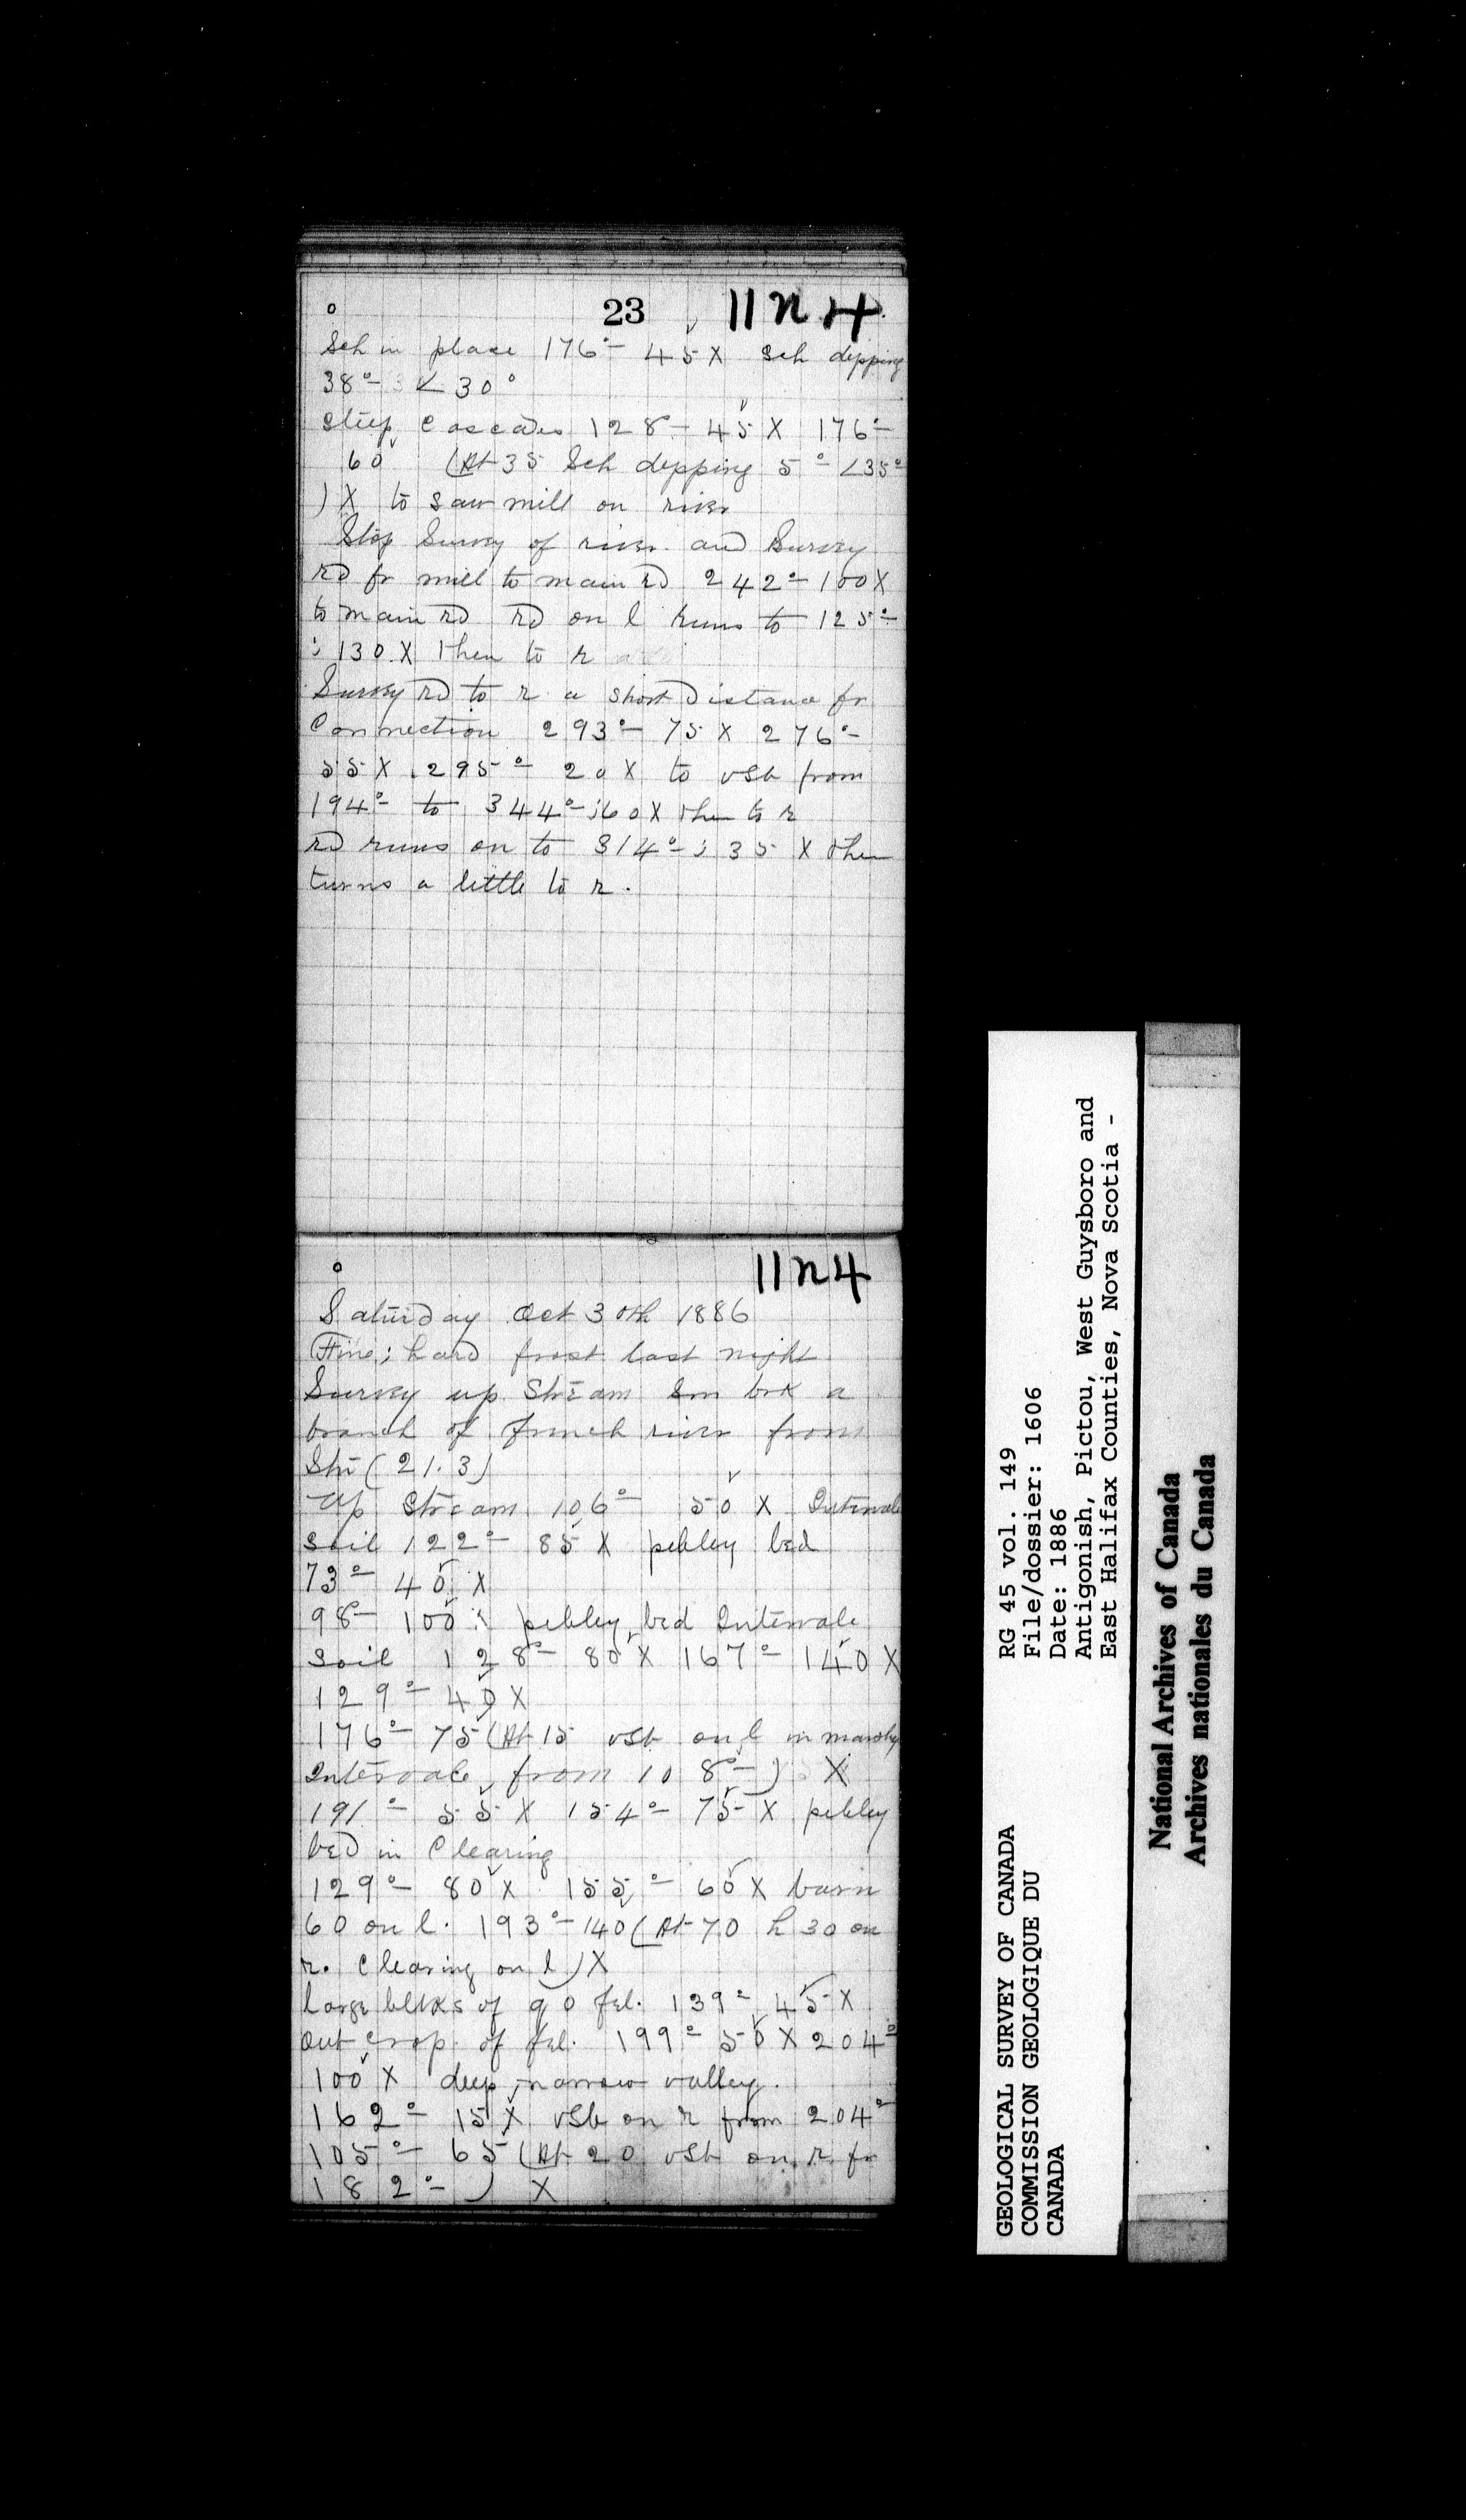 23 11 n 4
Sch in place 176°- 45 X Sch dipping
38°- < 30°
Steep Cascades 128- 45 X 176°-
60 (At 35 Sch dipping 5°- <35°
) X to saw mill on river
Stop Survey of river and Survey
rd fr mill to main rd 242°- 100 X
to main rd rd on l runs to 125°-
; 130 X then to r
Survey rd to r a short Distance fr
Connection 293°- 75 X 276°-
55 X 295°- 20 X to vSb from
194°- to 344°- ; 60 X then to r
rd runs on to 314°- ; 35 X then
turns a little to r.
11 n 4
Saturday Oct 30th 1886
Fine; hard frost last night
Survey up Stream Sm brk a
branch of french river from
Stn (21.3)
Up Stream 106°- 50 X Intervale
soil 122°- 85 X pebley bed
73°- 40 X
98- 100 X pebley bed Intervale
soil 128°- 80 X 167°- 140 X
129°- 40 X
176°- 75 (At 15 vSb on l in marshy
Intervale from 108°-) X
191°- 55 X 154°- 75 X pebley
bed in Clearing
129°- 80 X 155°- 60 X barn
60 on l. 193°- 140 (At 70 h 30 on
r. Clearing on l) X
large blks of q o fel. 139°- 45 X
out crop of fel. 199°- 50 X 204°-
100 X deep, narrow valley.
162°- 15 X vSb on r from 204°-
105°- 65 (At 20 vSb on r fr
182°-) X
GEOLOGICAL SURVEY OF CANADA
COMMISSION GEOLOGIQUE DU
CANADA
RG 45 vol. 149
File/dossier: 1606
Date: 1886
Antigonish, Pictou, West Guysboro and
East Halifax Counties, Nova Scotia -
National Archives of Canada
Archives nationales du Canada